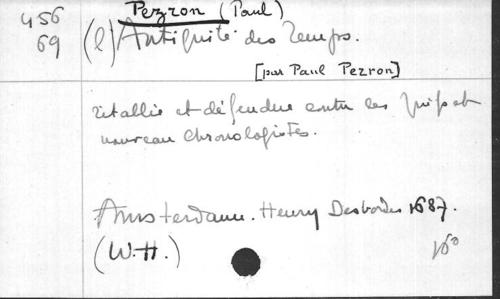 456
69
Pezron (Paul)
(l') Antiquité des Temps.
[par Paul Pezron]
rétablie et défendue contre les Juifs et
nouveau Chronologistes.
Amsterdam. Henry Desbordes 1687.
(W.H.)
16°